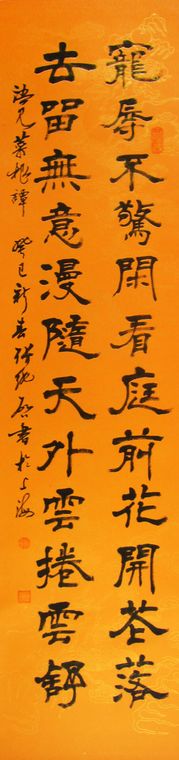 寵辱不驚閑看庭前花開花落
去留無意漫隨天外雲捲雲舒
語見菜根譚 癸巳新春
書於上海